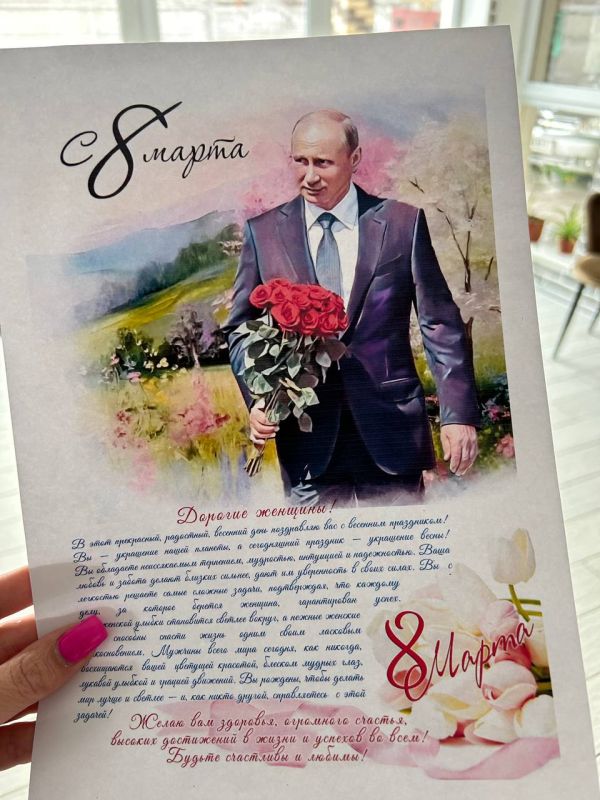 с 8 марта
Дорогие женщины!
В этот прекрасный, радостный, весенний день поздравляю вас с весенним праздником!
Вы — украшение нашей планеты, а сегодняшний праздник — украшение весны!
Вы обладаете неиссякаемым терпением, мудростью, интуицией и надежностью. Ваша
любовь и забота делают близких сильнее, дают им уверенность в своих силах. Вы с
легкостью решаете самые сложные задачи, подтверждая, что каждому
делу, за которое берется женщина, гарантирован успех.
женской улыбки становится светлее вокруг, а нежные женские
способны спасти жизнь одним своим ласковым
Мужчины всего мира сегодня, как никогда,
восхищаются вашей цветущей красотой, блеском мудрых глаз,
лукавой улыбкой и грацией движений. Вы рождены, чтобы делать
мир лучше и светлее — и, как никто другой, справляетесь с этой
задачей!
8 Марта
Желаю вам здоровья, огромного счастья,
высоких достижений в жизни и успехов во всем!
Будьте счастливы и любимы!